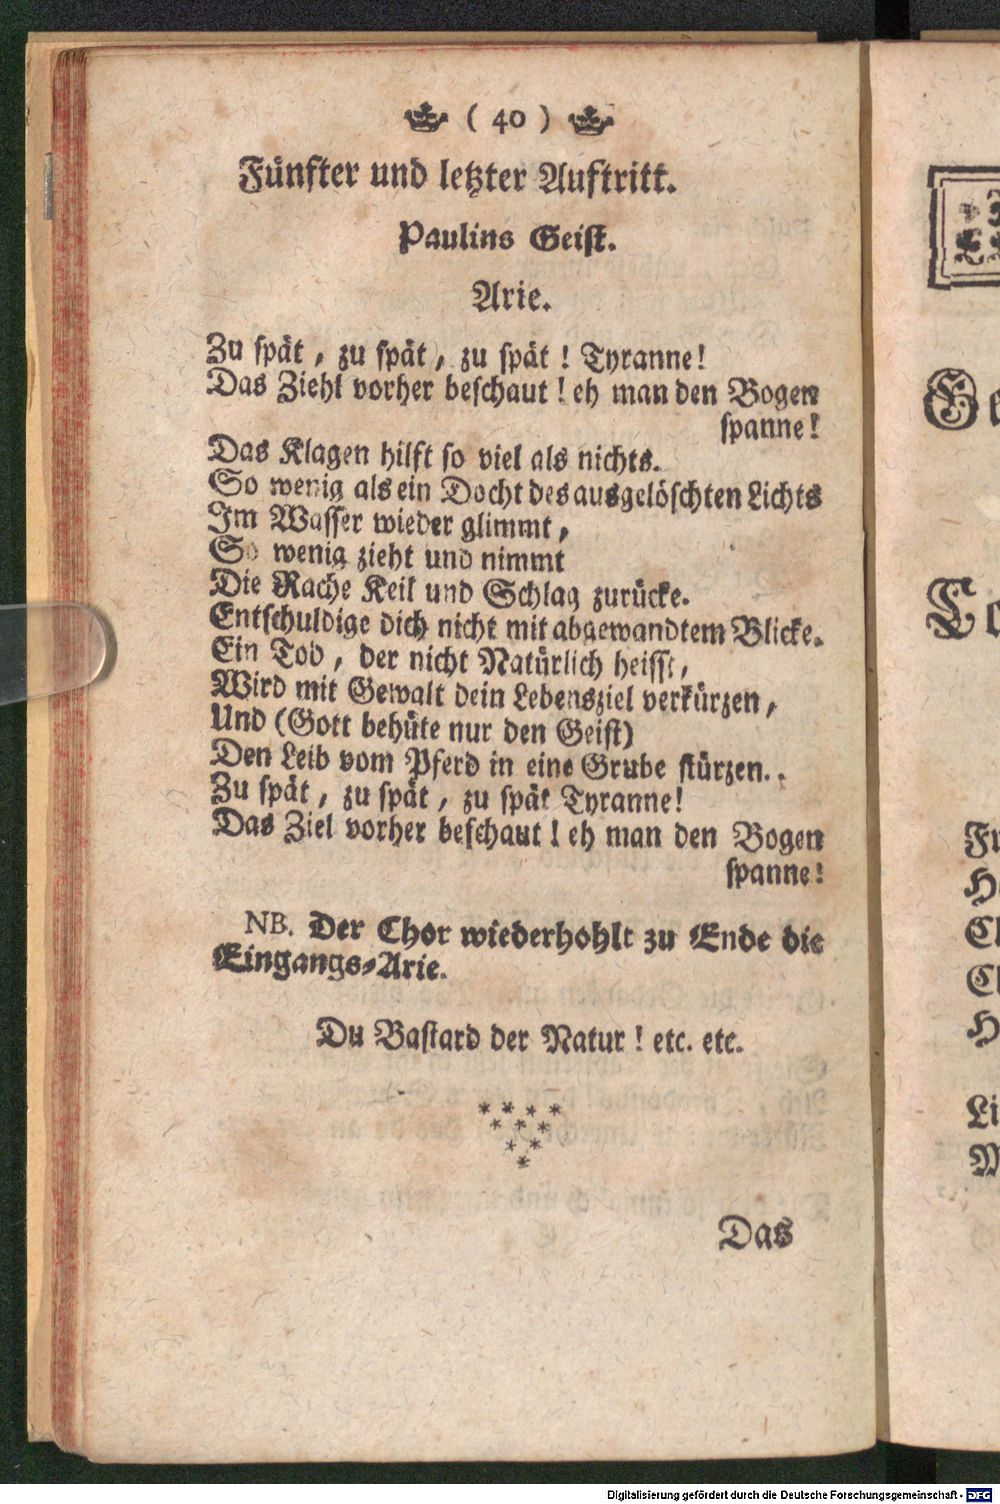 ( 40 )
Fünfter und letzter Auftritt.
Paulins Geist.
Arie.
Zu spät, zu spät, zu spät! Tyranne!
Das Ziehl vorher beschaut! eh man den Bogen
spanne!
Das Klagen hilft so viel als nichts.
So wenig als ein Docht des ausgelöschten Lichts
Im Wasser wieder glimmt,
So wenig zieht und nimmt
Die Rache Keil und Schlag zurücke.
Entschuldige dich nicht mit abgewandtem Blicke.
Ein Tod, der nicht Natürlich heisst,
Wird mit Gewalt dein Lebensziel verkürzen,
Und (Gott behüte nur den Geist)
Den Leib vom Pferd in eine Grube stürzen..
Zu spät, zu spät, zu spät Tyranne!
Das Ziel vorher beschaut! eh man den Bogen
spanne!
NB. Der Chor wiederhohlt zu Ende die
Eingangs-Arie.
Du Bastard der Natur! etc. etc.
* * * *
* * *
* *
*
Das
Digitalisierung gefördert durch die Deutsche Forschungsgemeinschaft - DFG